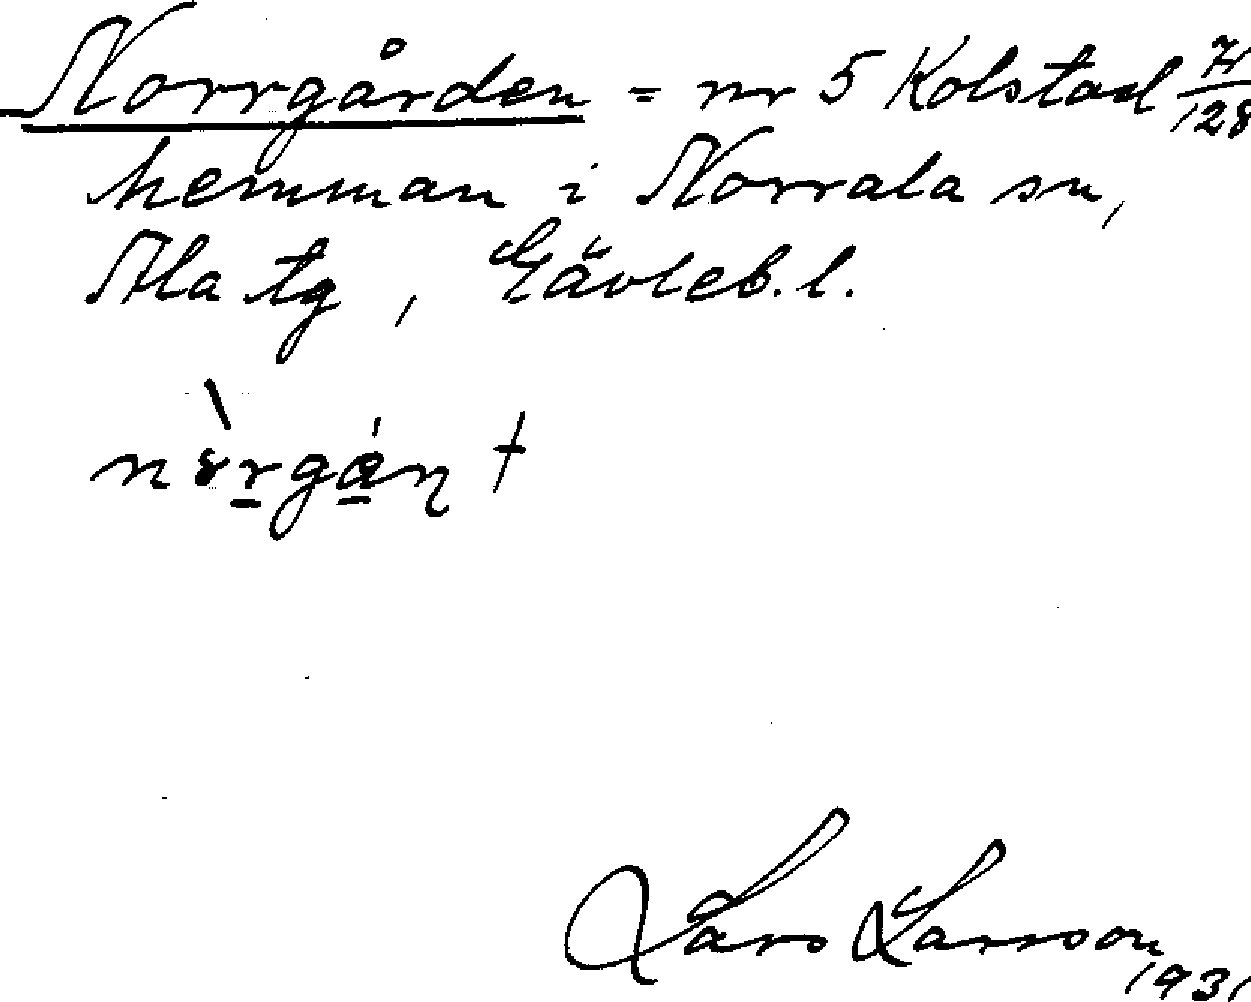 Norrgården = nr 5 Kolstad 71/128
hemman i Norrala sn,
Ala tg, Gävleb. l.
Lars Larsson
1931